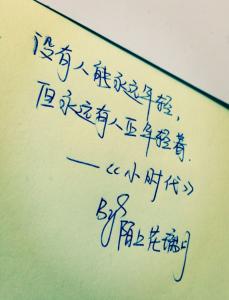 没有人能永远年轻，
但永远有人正年轻着.
——《小时代》
By
陌上花